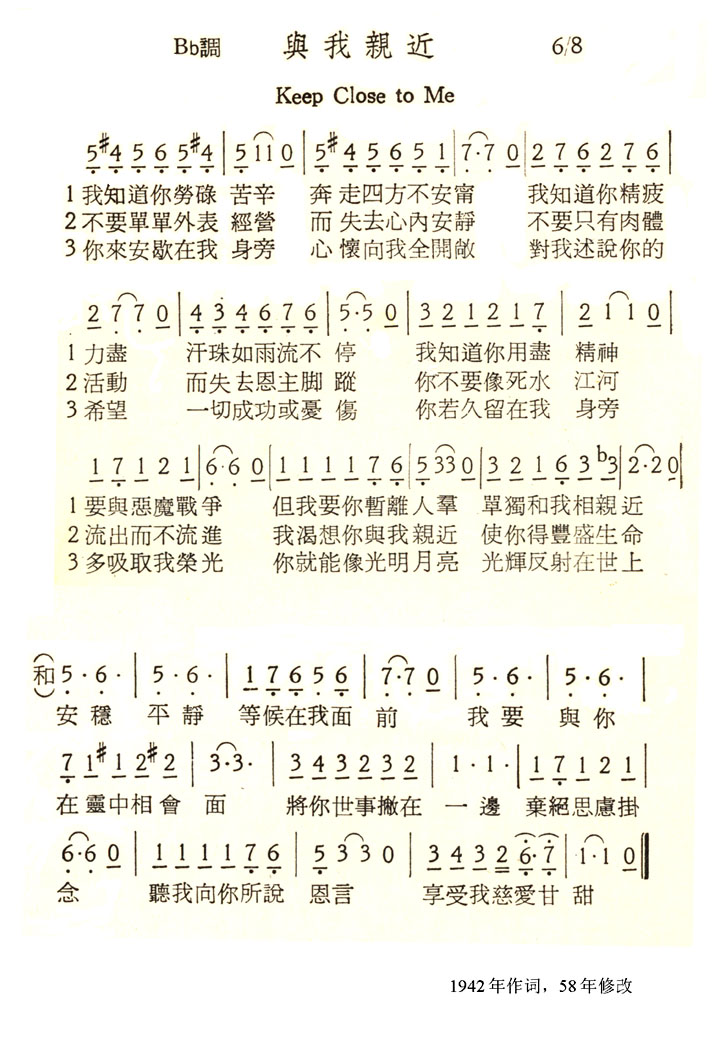 Bb調 與我親近 6/8
Keep Close to Me
5 #4 5 6 5 #4 | 5 1 1 0 | 5 #4 5 6 5 1 | 7·7 0 | 2 7 6 2 7 6 |
1 我知道你勞碌 苦辛 奔走四方不安甯 我知道你精疲
2 不要單單外表 經營 而失去心內安靜 不要只有肉體
3 你來安歇在我 身旁 心懷向我全開敞 對我述說你的
2 7 7 0 | 4 3 4 6 7 6 | 5·5 0 | 3 2 1 2 1 7 | 2 1 1 0 |
1 力盡 汗珠如雨流不 停 我知道你用盡 精神
2 活動 而失去恩主脚 蹤 你不要像死水 江河
3 希望 一切成功或憂 傷 你若久留在我 身旁
1 7 1 2 1 | 6·6 0 | 1 1 1 1 7 6 | 5 3 3 0 | 3 2 1 6 3 b3 | 2·2 0 |
1 要與惡魔戰爭 但我要你暫離人羣 單獨和我相親近
2 流出而不流進 我渴想你與我親近 使你得豐盛生命
3 多吸取我榮光 你就能像光明月亮 光輝反射在世上
(和) 5·6· | 5·6· | 1 7 6 5 6 | 7·7 0 | 5·6· | 5·6· |
安穩 平靜 等候在我面 前 我要 與你
7 1 #1 2 #2 | 3·3· | 3 4 3 2 3 2 | 1·1· | 1 7 1 2 1 |
在靈中相會 面 將你世事撇在 一邊 棄絕思慮掛
6·6 0 | 1 1 1 1 7 6 | 5 3 3 0 | 3 4 3 2 6·7 | 1·1 0 ||
念 聽我向你所說 恩言 享受我慈愛甘 甜
1942年作词，58年修改